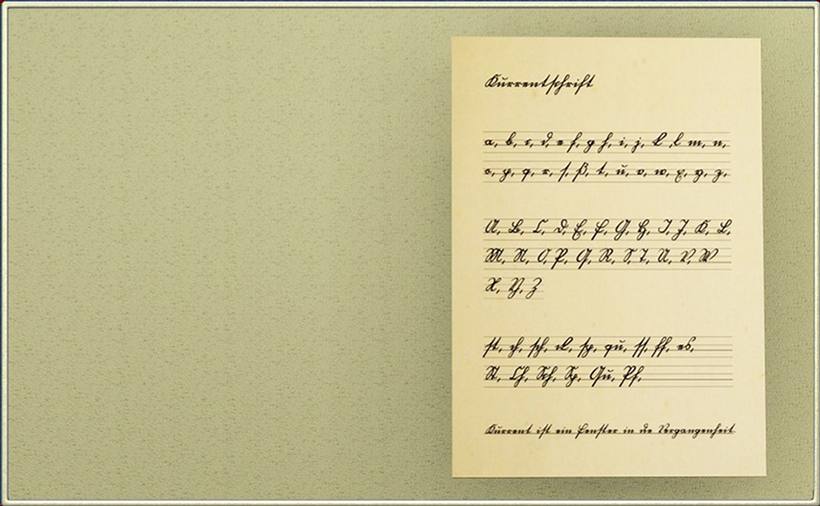 Kurrentschrift
a, b, c, d, e, f, g, h, i, j, k, l, m, n,
o, p, q, r, s, ß, t, u, v, w, x, y, z,
A, B, C, D, E, F, G, H, I, J, K, L,
M, N, O, P, Q, R, S, T, U, V, W
X, Y, Z
st, ch, sch, ck, sp, qu, ss, ff, es,
St, Ch, Sch, Sp, Qu, Pf,
Kurrent ist ein Fenster in die Vergangenheit